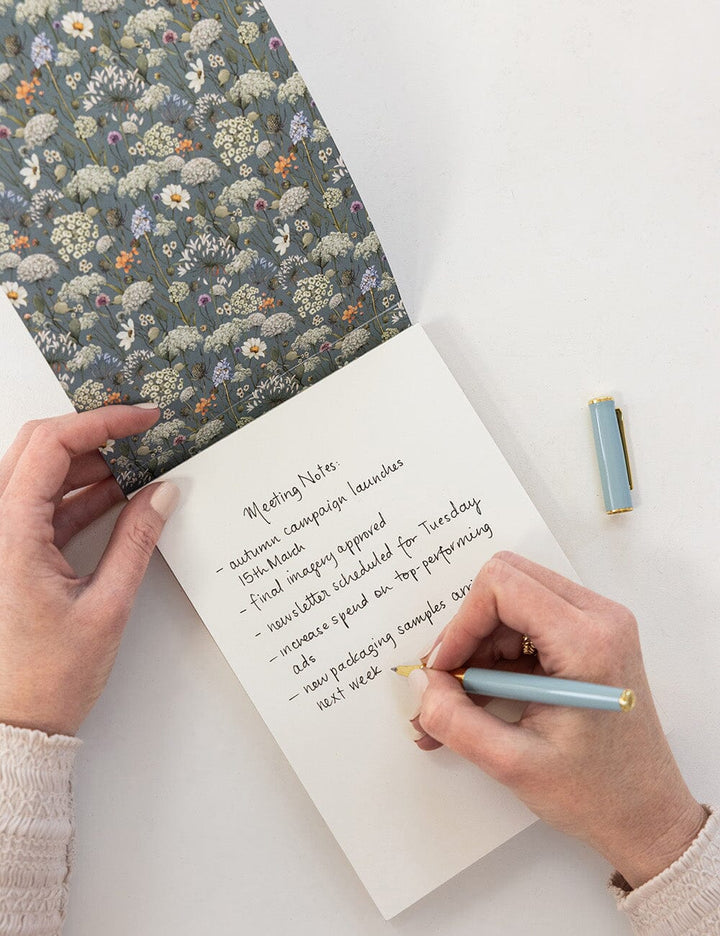 Meeting Notes:
- autumn campaign launches
15th March
- final imagery approved
- newsletter scheduled for Tuesday
- increase spend on top-performing
ads
- new packaging samples arri
next week